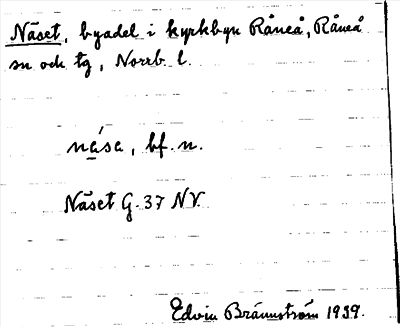 Näset, byadel i kyrkbyn Råneå, Råneå
sn och tg, Norrb. l.
nása, bf. n.
Näset G. 37 NV.
Edvin Brännström 1939.